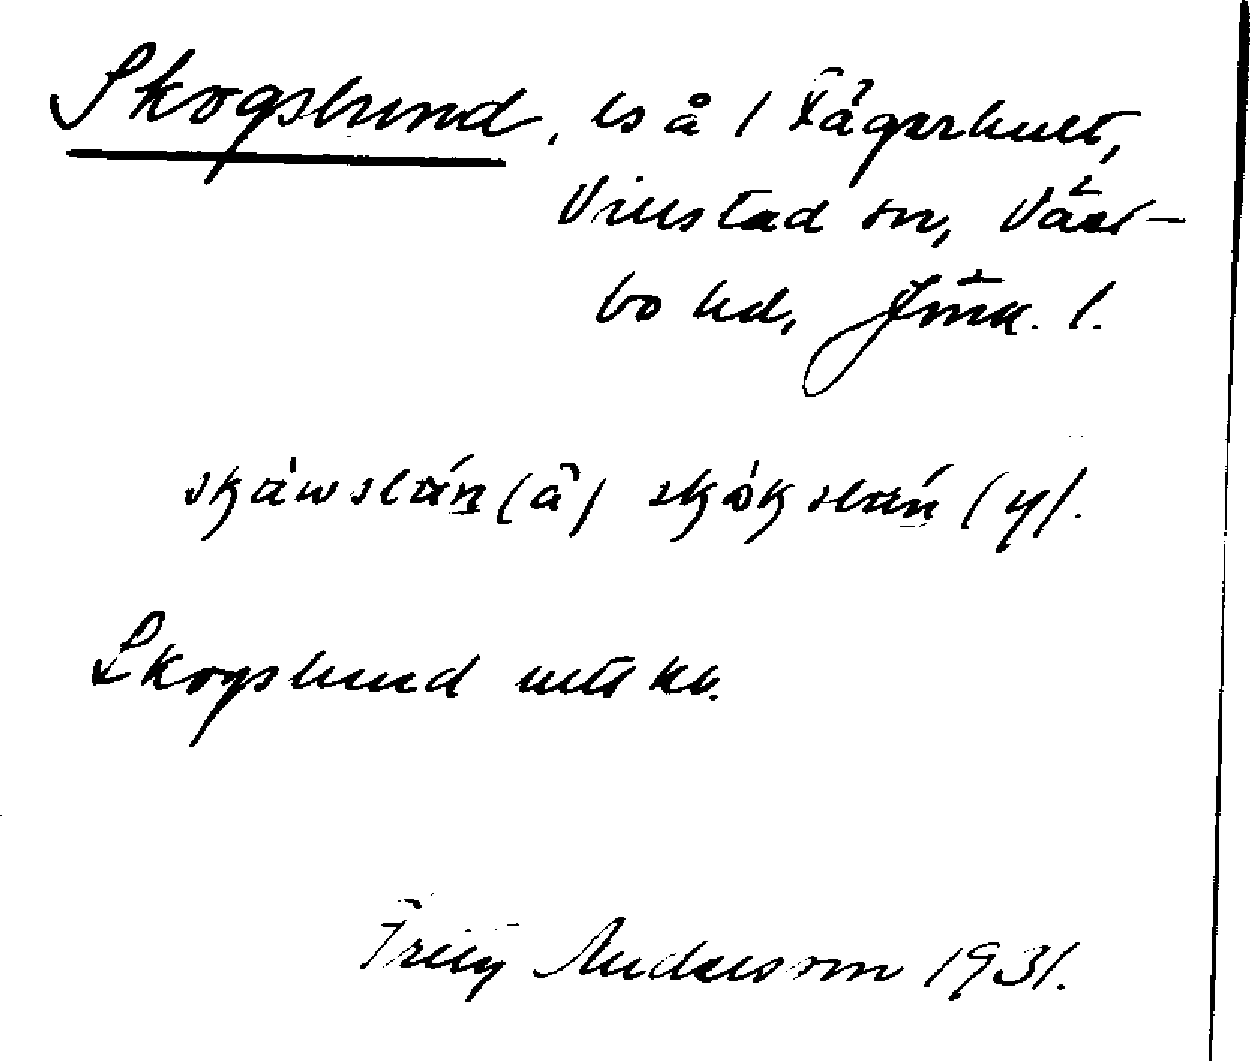 Skogslund, ls å 1 Fågerhult,
Villstad sn, Väst-
bo hd, Jönk. l.
skåwslán (ä) skókslán (y).
Skogslund utt kv.
Fritz Andersson 1931.